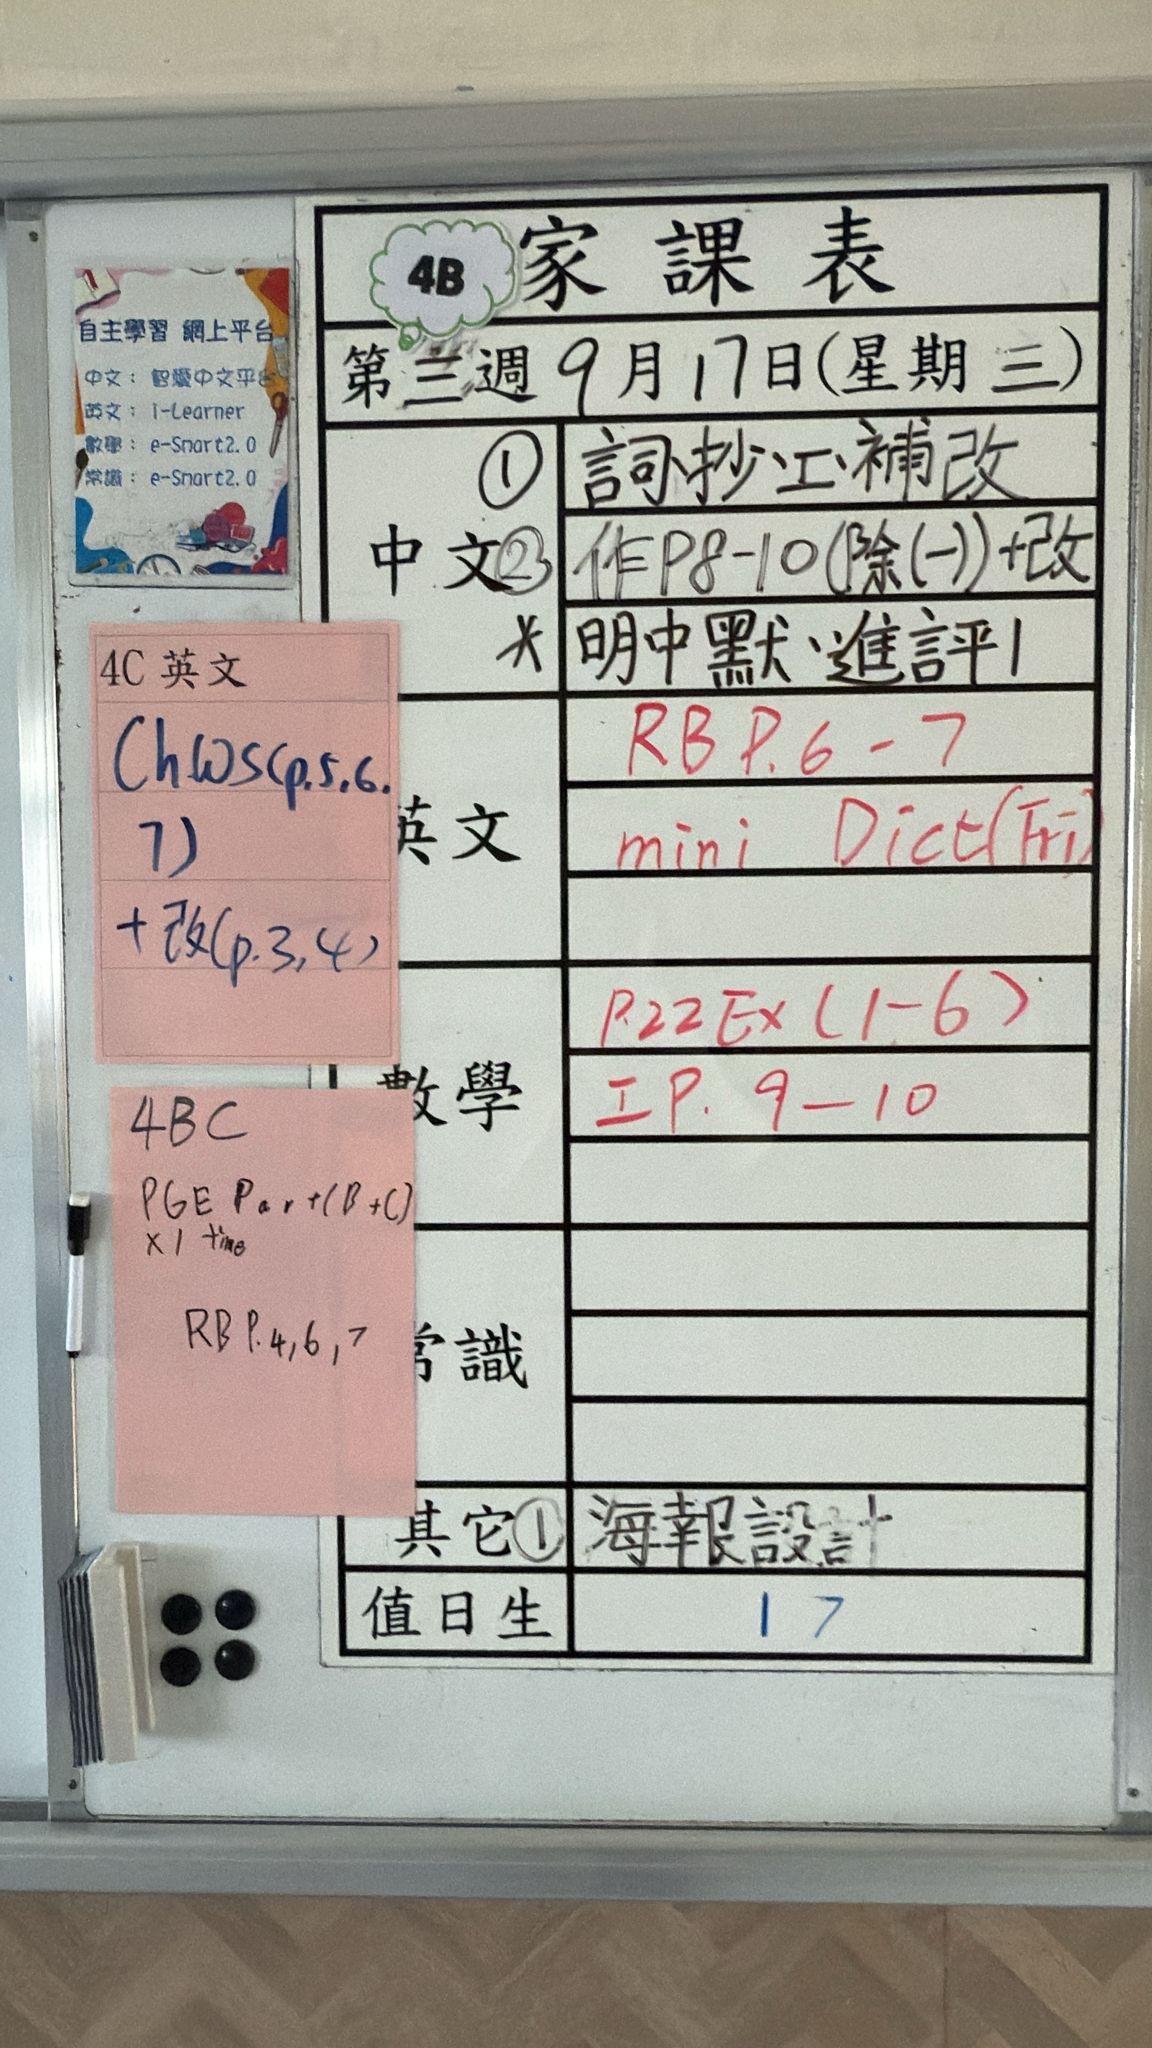 4B
家課表
第三週 9月17日(星期三)
自主學習 網上平台
中文：智愛中文平台
英文：i-Learner
數學：e-Smart2.0
常識：e-Smart2.0
中文
① 詞、抄、工、補改
② 作P8-10(除(一))+改
* 明中默、進評1
英文
RB P.6-7
mini Dict(Fri)
數學
P.22Ex(1-6)
工P.9-10
常識
其它① 海報設計
值日生 17
4C 英文
ChWS(p.5.6.
7)
+改(p.3,4)
4BC
PGE Part(B+C)
x1 time
RB P.4,6,7